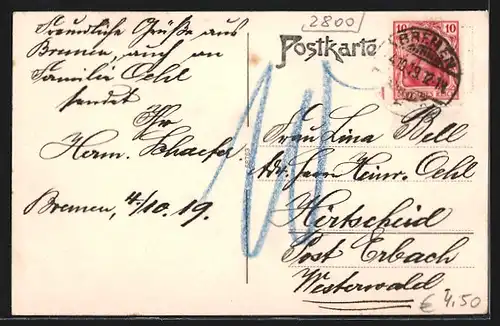 Freundliche Grüße aus
Bremen, auch an
Familie Oehl
sendet
Ihr
Herm. Schaefer
Bremen, 4/10.19.
2800
Postkarte
10 10
BREMEN
Frau Lina Bell
Adr. Herrn Heinr. Oehl
Hirtscheid
Post Erbach
Westerwald
€ 4,50